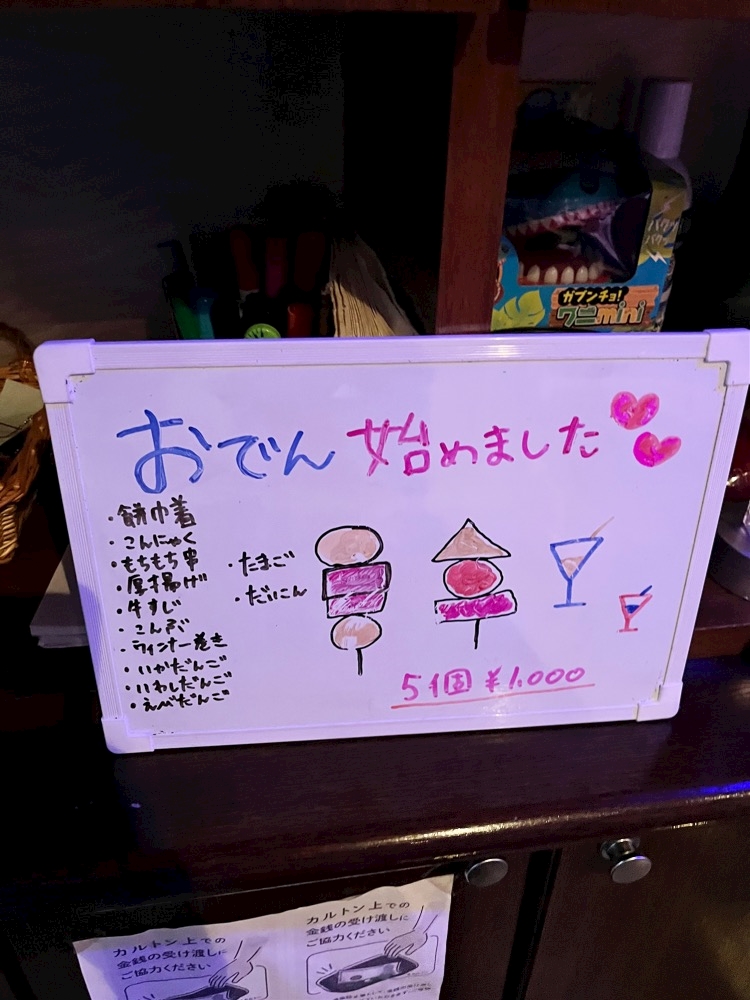 バクッ
バク
ガブンチョ!
ワニmini
おでん 始めました
・餅巾着
・こんにゃく
・もちもち串
・厚揚げ
・牛すじ
・こんぶ
・ウィンナー巻き
・いかだんご
・いわしだんご
・えびだんご
・たまご
・だいこん
5個 ¥1,000
カルトン上での
金銭の受け渡しに
ご協力ください
カルトン上での
金銭の受け渡しに
ご協力ください